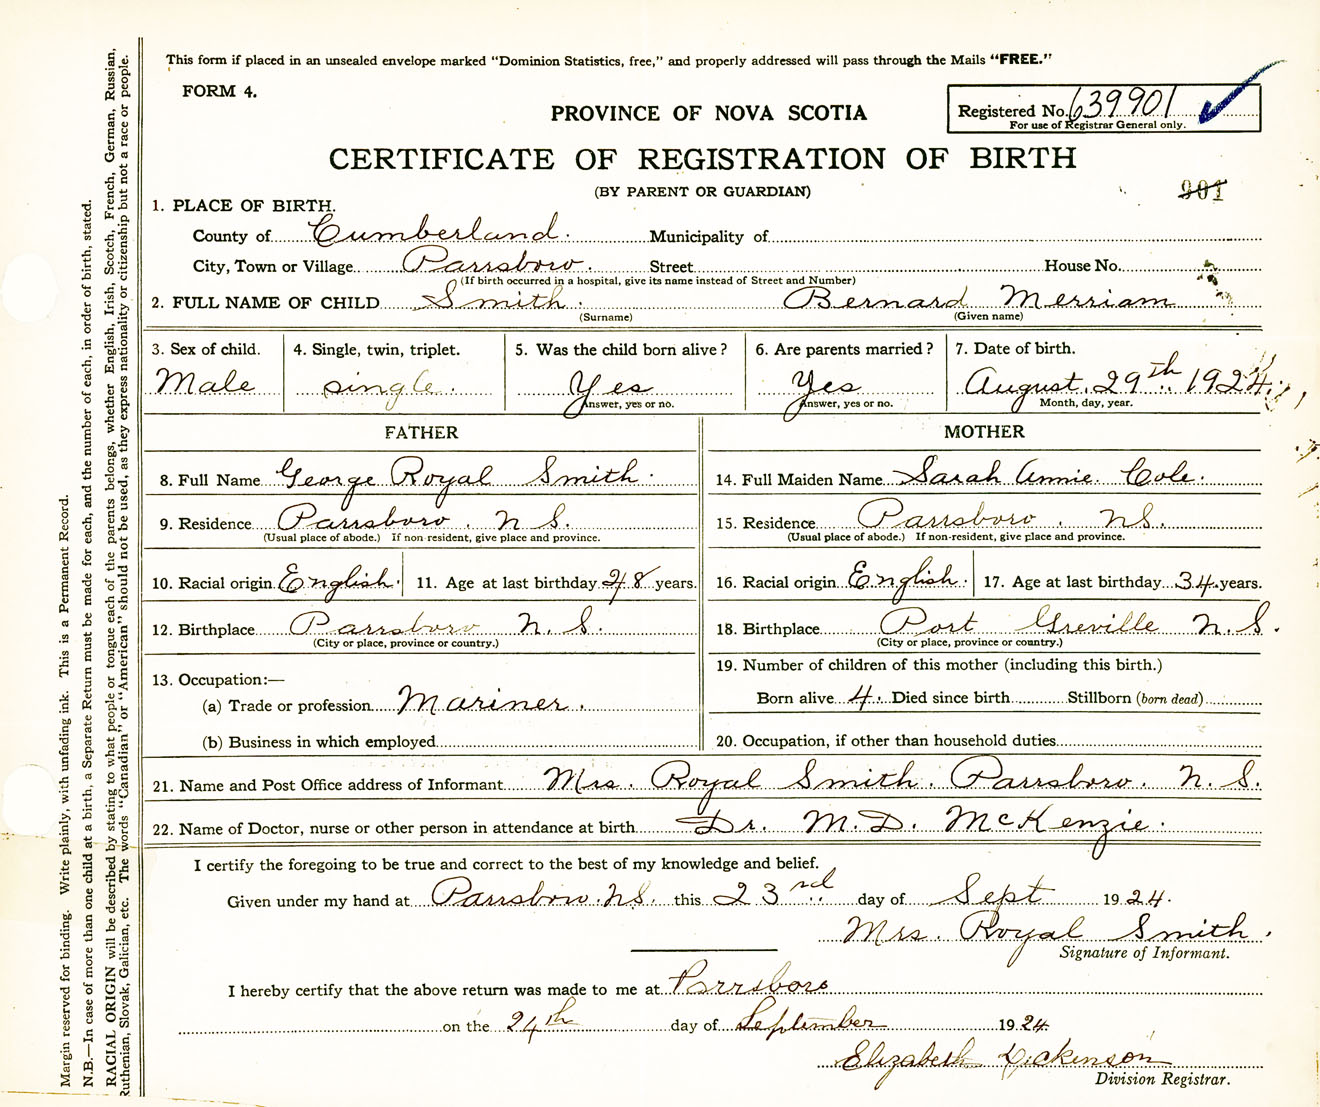 This form if placed in an unsealed envelope marked "Dominion Statistics, free," and properly addressed will pass through the Mails "FREE."
FORM 4.
PROVINCE OF NOVA SCOTIA
Registered No. 639901
For use of Registrar General only.
CERTIFICATE OF REGISTRATION OF BIRTH
(BY PARENT OR GUARDIAN)
901
1. PLACE OF BIRTH.
County of Cumberland. Municipality of
City, Town or Village Parrsboro. Street House No.
(If birth occurred in a hospital, give its name instead of Street and Number)
2. FULL NAME OF CHILD Smith. Bernard Merriam
(Surname) (Given name)
3. Sex of child. 4. Single, twin, triplet. 5. Was the child born alive? 6. Are parents married? 7. Date of birth.
Male single. Yes Yes August. 29th. 1924.
Answer, yes or no. Answer, yes or no. Month, day, year.
FATHER MOTHER
8. Full Name George Royal Smith. 14. Full Maiden Name Sarah Annie. Cole.
9. Residence Parrsboro. N S. 15. Residence Parrsboro. NS.
(Usual place of abode.) If non-resident, give place and province. (Usual place of abode.) If non-resident, give place and province.
10. Racial origin English. 11. Age at last birthday 48 years. 16. Racial origin English. 17. Age at last birthday 34 years.
12. Birthplace Parrsboro N. S. 18. Birthplace Port Greville N. S.
(City or place, province or country.) (City or place, province or country.)
13. Occupation:— 19. Number of children of this mother (including this birth.)
(a) Trade or profession Mariner. Born alive 4. Died since birth Stillborn (born dead)
(b) Business in which employed 20. Occupation, if other than household duties
21. Name and Post Office address of Informant Mrs. Royal Smith. Parrsboro. N. S.
22. Name of Doctor, nurse or other person in attendance at birth Dr. M. D. McKenzie.
I certify the foregoing to be true and correct to the best of my knowledge and belief.
Given under my hand at Parrsboro. NS. this 23rd day of Sept 1924.
Mrs. Royal Smith.
Signature of Informant.
I hereby certify that the above return was made to me at Parrsboro
on the 24th day of September 1924
Elizabeth Dickenson
Division Registrar.
Margin reserved for binding. Write plainly, with unfading ink. This is a Permanent Record.
N.B.—In case of more than one child at a birth, a Separate Return must be made for each, and the number of each, in order of birth, stated.
RACIAL ORIGIN will be described by stating to what people or tongue each of the parents belongs, whether English, Irish, Scotch, French, German, Russian,
Ruthenian, Slovak, Galician, etc. The words "Canadian" or "American" should not be used, as they express nationality or citizenship but not a race or people.